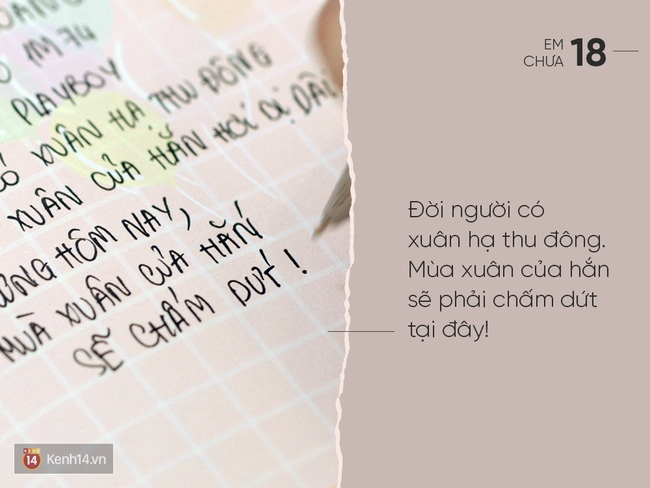 OANG
1M74
PLAYBOY
CÓ XUÂN HẠ THU ĐÔNG
XUÂN CỦA HẮN HƠI BỊ DÀI
HÔM NAY,
MÙA XUÂN CỦA HẮN
SẼ CHẤM DỨT!
EM
CHƯA 18
Đời người có
xuân hạ thu đông.
Mùa xuân của hắn
sẽ phải chấm dứt
tại đây!
Kenh14.vn